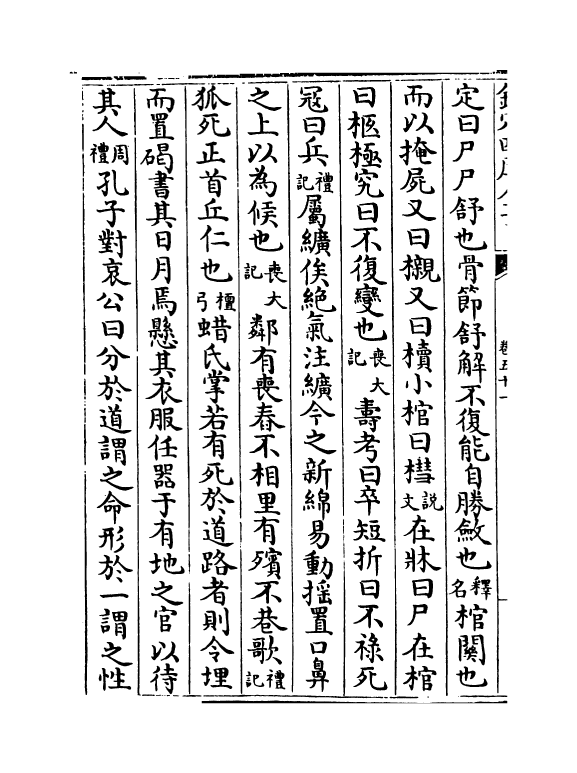 卷五十一
定曰尸尸舒也骨節舒解不復能自勝斂也釋名棺關也
而以掩屍又曰櫬又曰櫝小棺曰槥說文在牀曰尸在棺
曰柩極究曰不復變也喪大記壽考曰卒短折曰不祿死
冦曰兵禮記屬纊俟絶氣注纊今之新綿易動揺置口鼻
之上以為候也喪大記鄰有喪舂不相里有殯不巷歌禮記
狐死正首丘仁也檀弓蜡氏掌若有死於道路者則令埋
而置碣書其日月焉懸其衣服任器于有地之官以待
其人周禮孔子對哀公曰分於道謂之命形於一謂之性